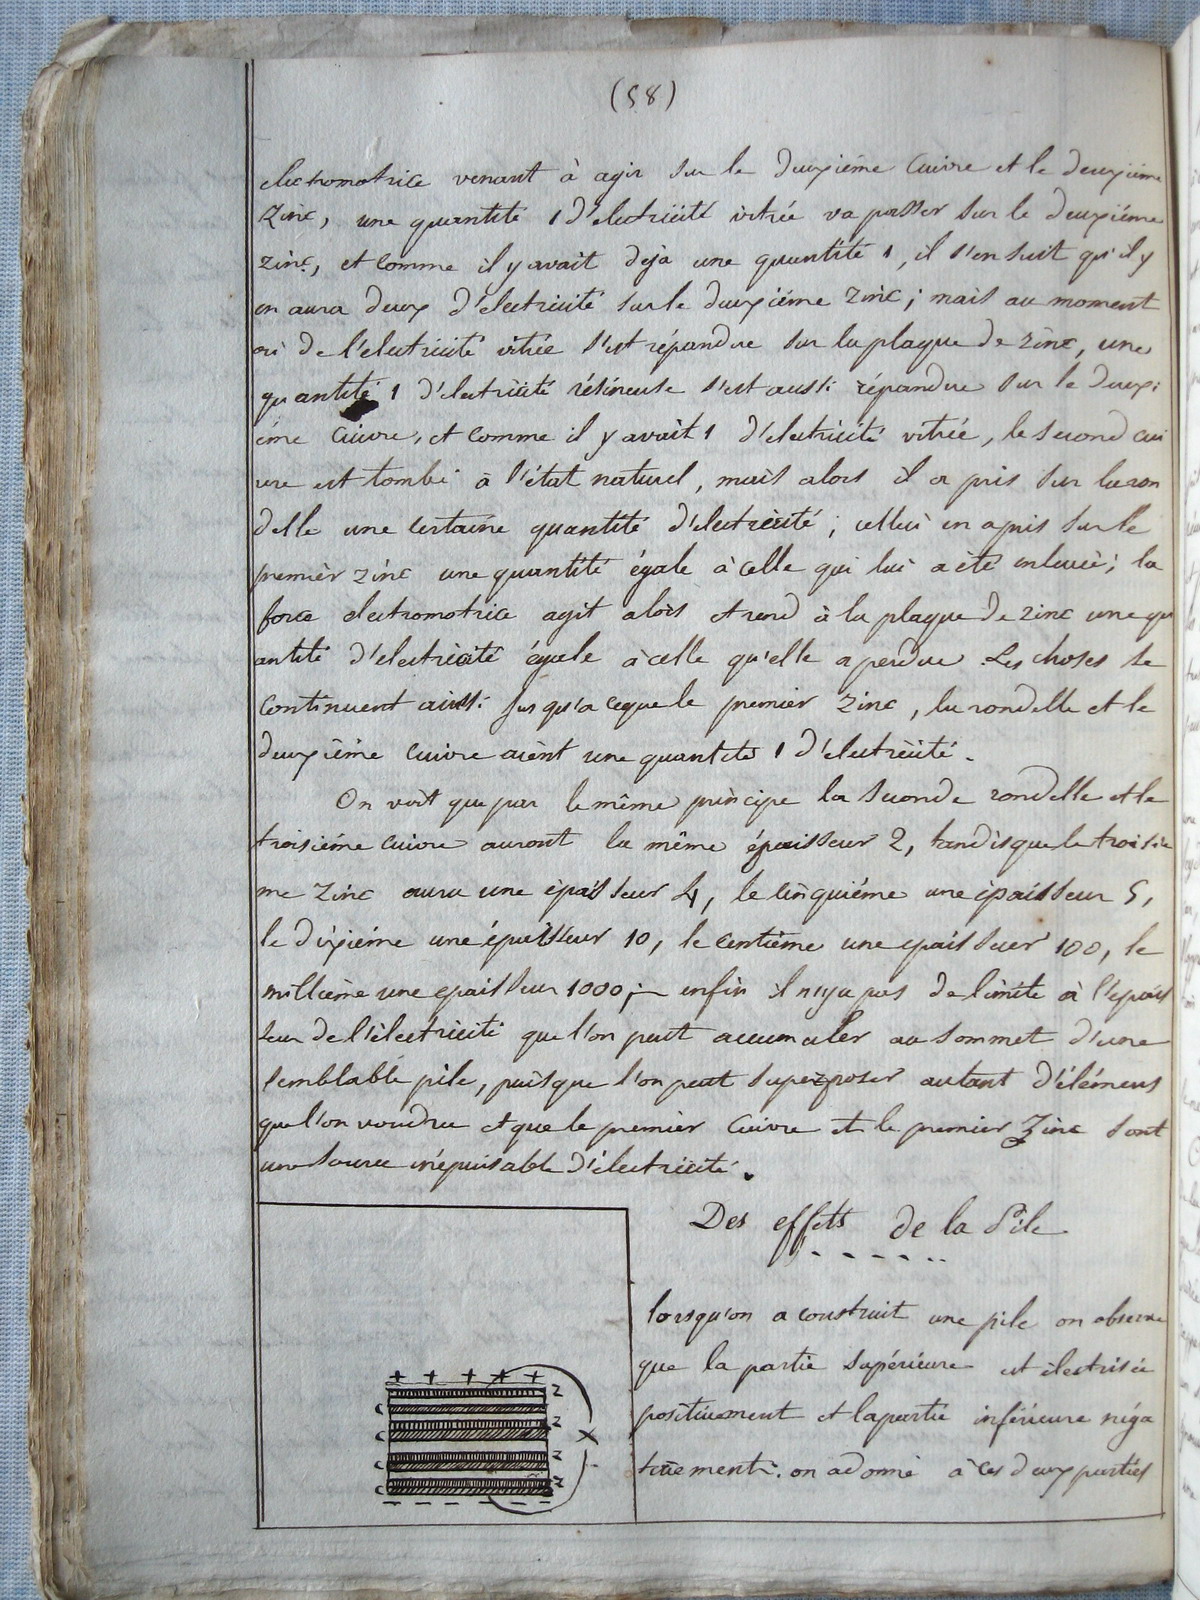 (58)
électromotrice venant à agir sur le deuxiéme cuivre et le deuxiéme
zinc, une quantité 1 d'électricité vitrée va passer sur le deuxiéme
zinc, et comme il y avait deja une quantité 1, il s'en suit qu'il y
en aura deux d'électricité sur le deuxiéme zinc; mais au moment
où de l'électricité vitrée s'est répandue sur la plaque de zinc, une
quantité 1 d'électricité résineuse s'est aussi répandue sur le deuxi
éme cuivre, et comme il y avait 1 d'électricité vitrée, le second cui
vre est tombé à l'état naturel, mais alors il a pris sur la ron
delle une certaine quantité d'électricité; celleci en a pris sur le
premier zinc une quantité égale à celle qui lui a été enlevée; la
force électromotrice agit alors et rend à la plaque de zinc une qu
antité d'électricité égale à celle qu'elle a perdue. Les choses se
continuent ainsi jusqu'a ceque le premier zinc, la rondelle et le
deuxiéme cuivre aient une quantité 1 d'électricité.
On voit que par le même principe la seconde rondelle et le
troisiéme cuivre auront la même épaisseur 2, tandis que le troisié
me zinc aura une épaisseur 4, le cinquiéme une épaisseur 5,
le dixiéme une épaisseur 10, le centiéme une epaisseur 100, le
milliéme une epaisseur 1000; enfin il n'y a pas de limite à l'épais
seur de l'électricité que l'on peut accumuler au sommet d'une
semblable pile, puisque l'on peut superposer autant d'élémens
que l'on voudra et que le premier cuivre et le premier zinc sont
une source inépuisable d'électricité.
Des effets de la Pile
lorsqu'on a construit une pile on observe
que la partie supérieure est électrisée
positivement et la partie inférieure néga
tivement. on a donné à ces deux parties
+ + + + +
z
c
z
c
z
c
z
c
- - - - -